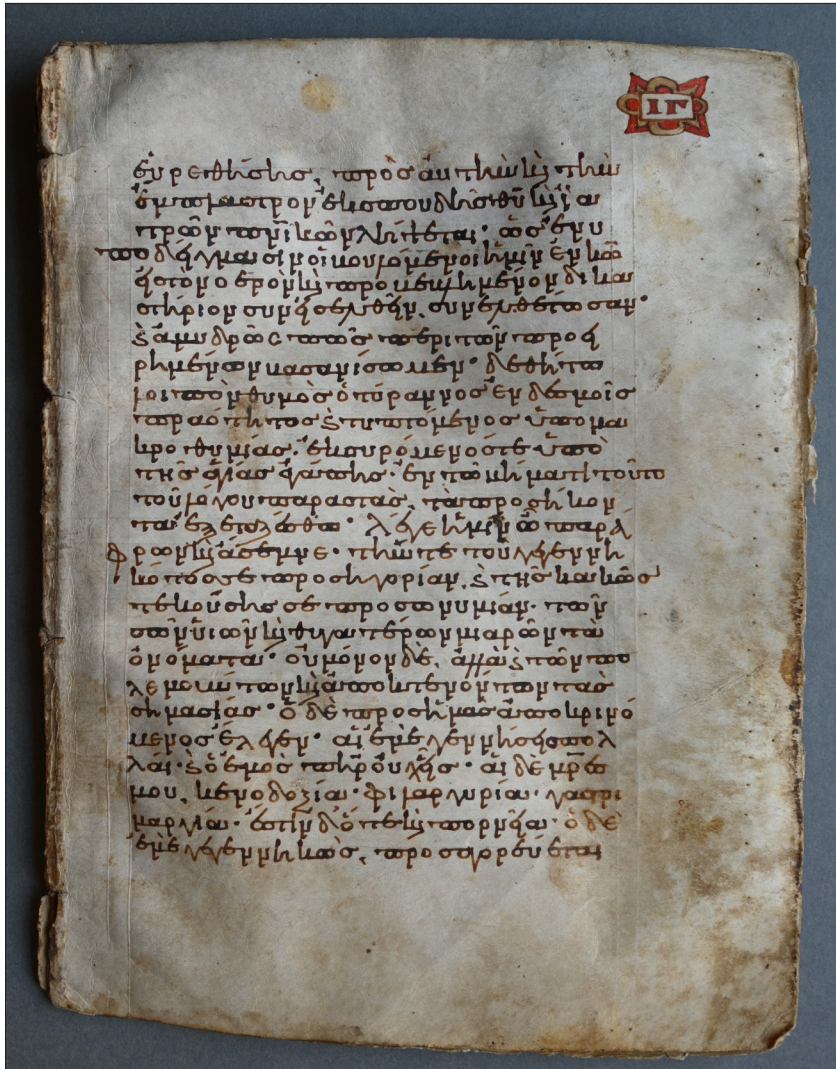 ΙΓ
εὑρεθείσης, πρὸς αὐτὴν καὶ τὴν
ἔμπλαστρον ἐκ σπουδῆς θῦ καὶ ἰα
τρῶν πνικῶν λήψεται· ὡς ἐν ὑ
ποδείγμασιν οἱ βουλόμενοι ἡμῖν ἐν κῶ
εἰς τὸ νοερὸν καὶ προκείμενον δικα
στήριον συνεισελθεῖν, συνελθέτωσαν·
καὶ ἀμυδρῶς πως περὶ τῶν προει
ρημένων βασανίσωμεν· δεθήτω
μοι πον θυμὸς ὁ τύραννος ἐν δεσμοῖς
πραότητος καὶ τυπτόμενος ὑπὸ μα
κροθυμίας· ἐκσυρόμενός τε ὑπὸ
τῆς ἁγίας ἀγάπης· ἐν τῷ βήματι τούτω
τοῦ λόγου παραστὰς, τὰ προσήκον
τα ἐξεταζέσθω· λέγε ἡμῖν ὦ παρά
φρων καὶ ἄσεμνε· τήν τε τοῦ γεγεννη
κότος σε προσηγορίαν, καὶ τῆς κακῶς
τεκούσης σε προσωνυμίαν· τῶν
σῶν υἱῶν καὶ θυγατέρων μιαρῶν τὰ
ὀνόματα· οὐ μόνον δὲ, ἀλλὰ καὶ τῶν πο
λεμούντων καὶ ἀποκτενόντων τὰς
σημασίας· ὁ δὲ πρὸς ἡμᾶς ἀποκρινό
μενος ἔλεγεν· αἱ ἐμὲ γεννήσασαι πολ
λαί· καὶ ὁ ἐμὸς πηρ οὐχ εἷς· αἱ δὲ μρές
μου, κενοδοξία· φιλαργυρία· γαστρι
μαργία· ἔστιν δ ὅτε καὶ πορνεία· ὁ δὲ
ἐμὲ γεγεννηκὼς, προσαγορεύεται